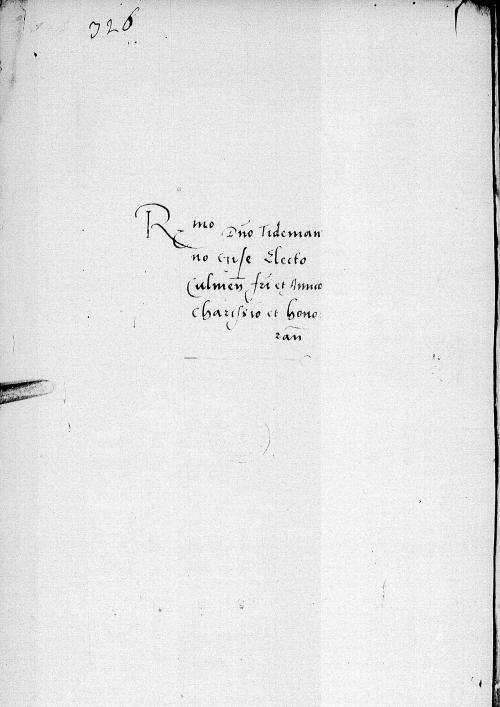 326
R mo Dño Tideman
no Gise Electo
Culmeñ fri et Amico
Charissio et hono
rañ